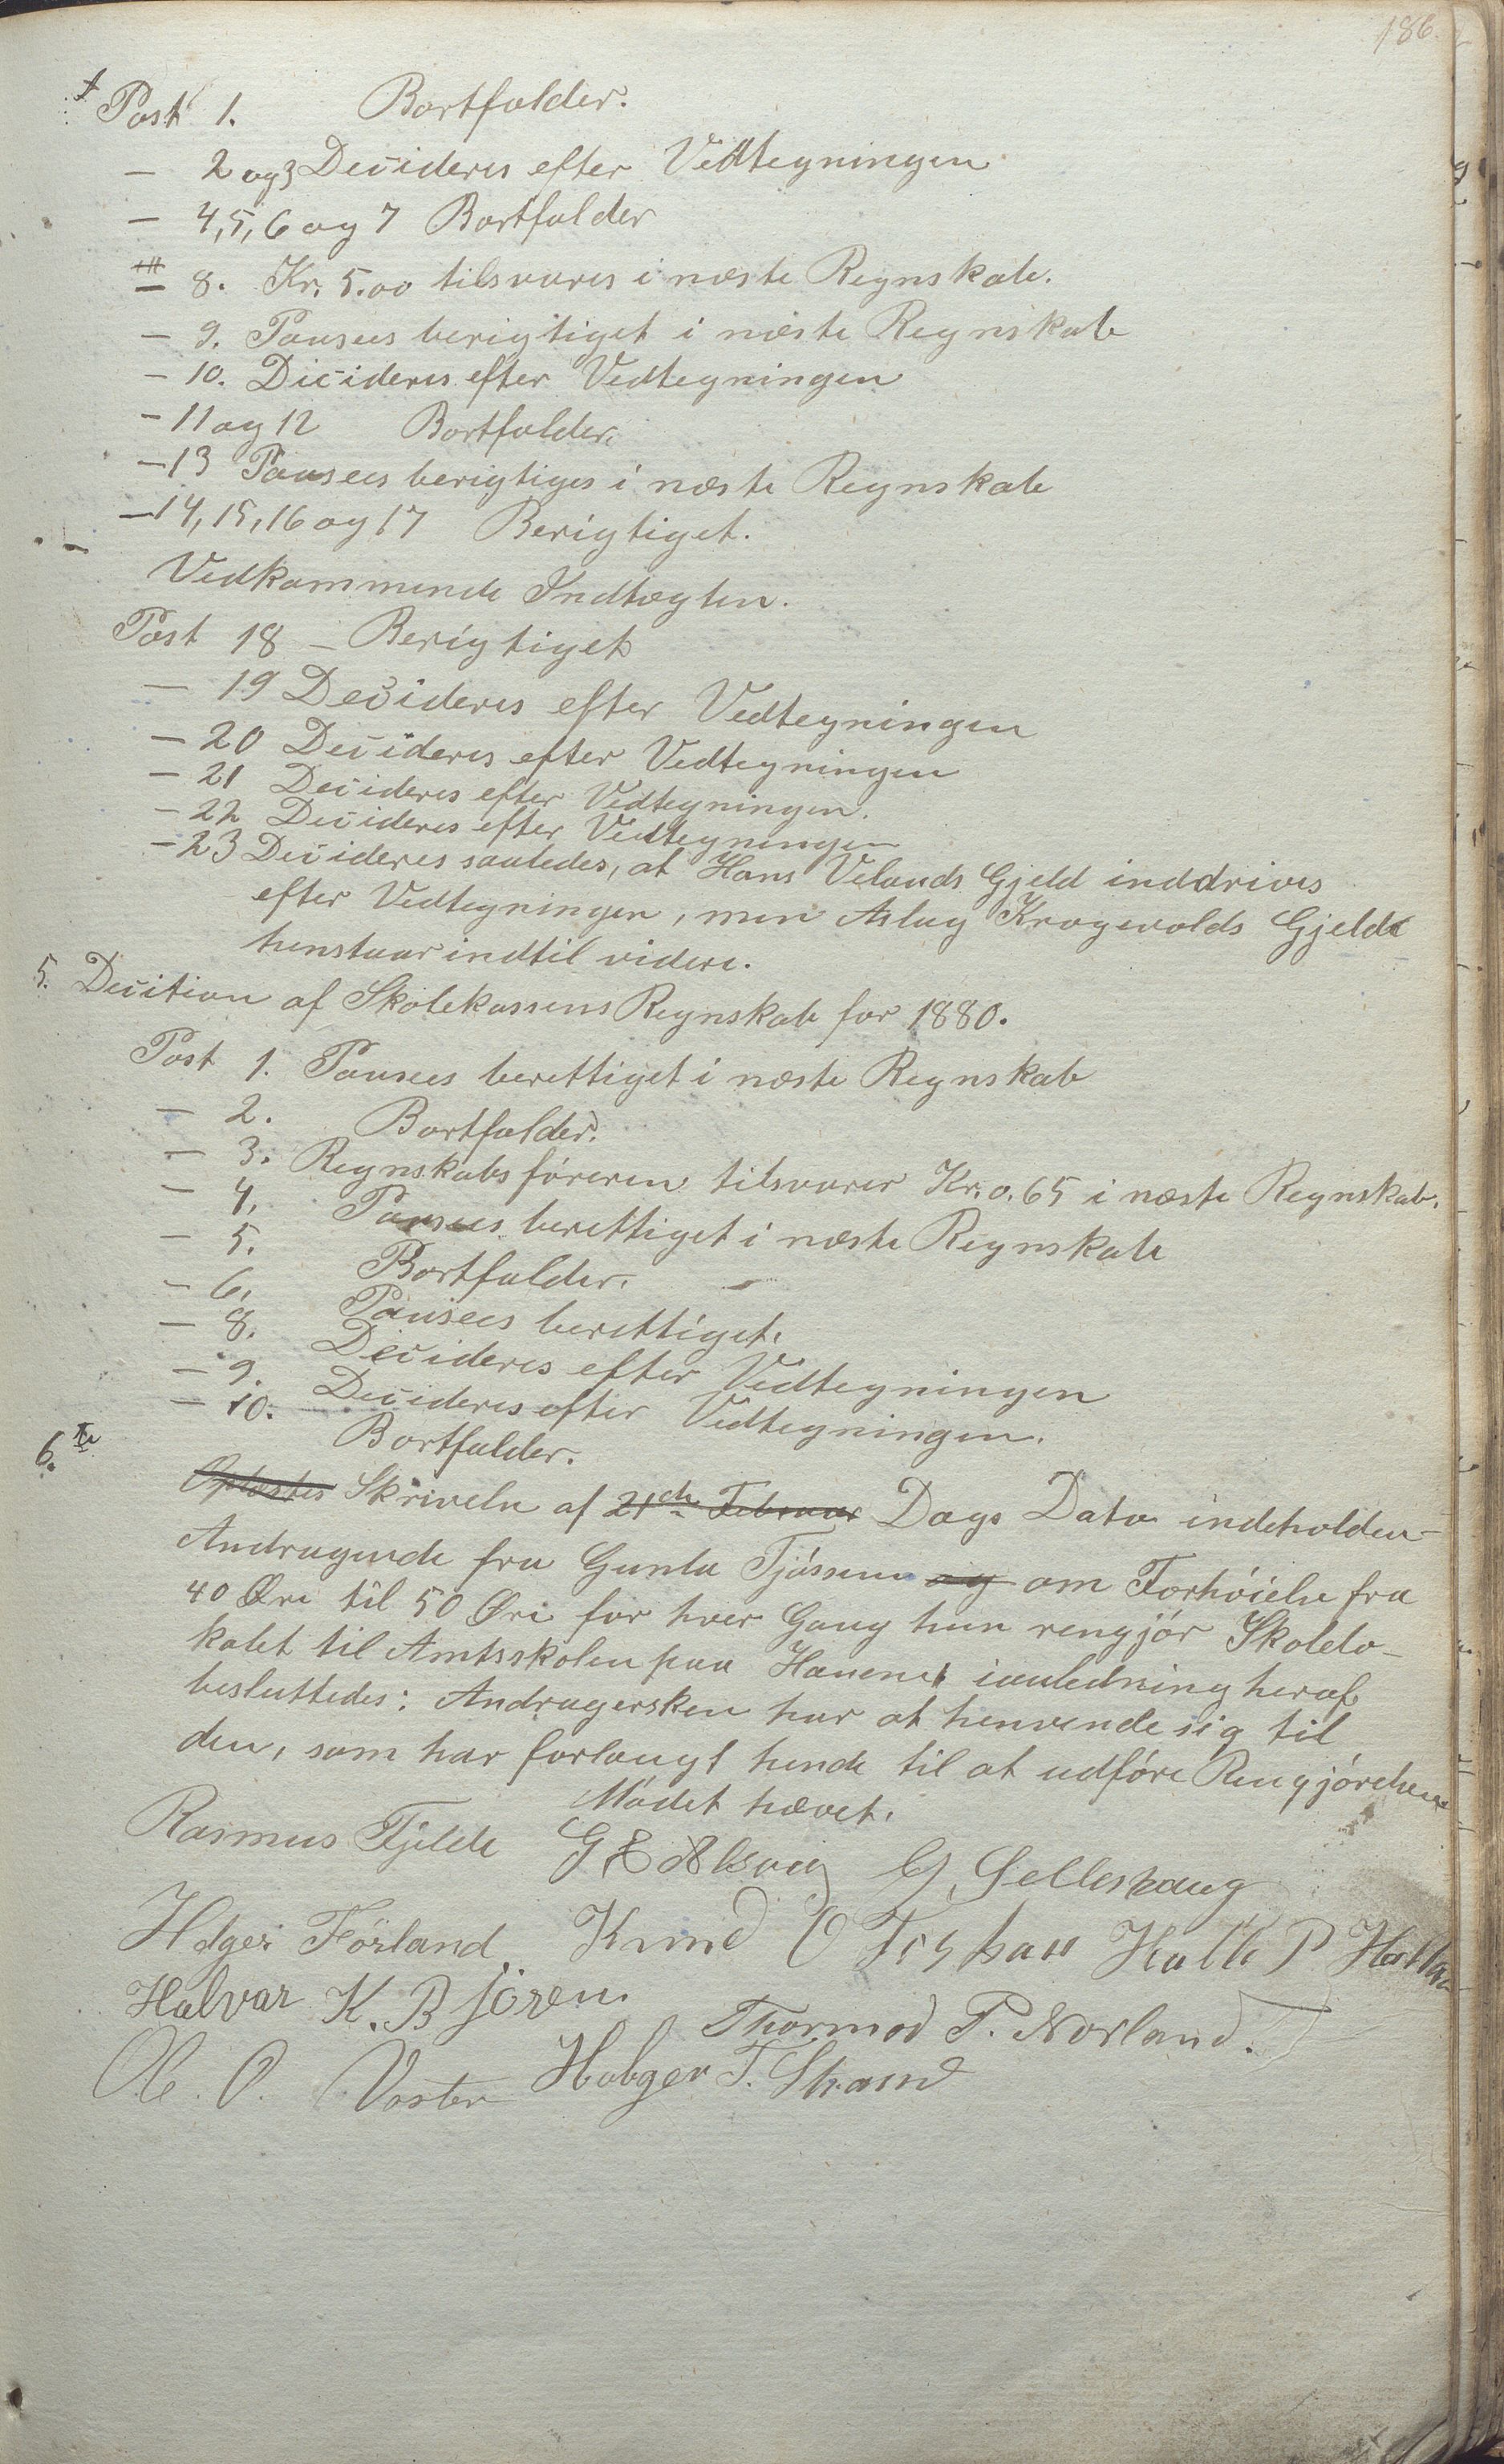 186.
Post 1. Bortfalder.
— 2 og 3 Decideres efter Vedtegningen
— 4, 5, 6 og 7 Bortfalder
— 8. Kr. 5.00 tilsvares i næste Regnskab.
— 9. Pansees berigtiget i næste Regnskab
— 10. Decideres efter Vedtegningen
— 11 og 12 Bortfalder.
— 13 Pansees berigtiges i næste Regnskab
— 14, 15, 16 og 17 Berigtiget.
Vedkommende Indtægten.
Post 18 — Berigtiget
— 19 Decideres efter Vedtegningen
— 20 Decideres efter Vedtegningen
— 21 Decideres efter Vedtegningen.
— 22 Decideres efter Vedtegningen
— 23 Decideres saaledes, at Hans Velands Gjeld inddrives
efter Vedtegningen, men Aslag Kragevolds Gjeld
henstaar indtil videre.
5. Decition af Skolekassens Regnskab for 1880.
Post 1. Pansees berettiget i næste Regnskab
— 2. Bortfalder.
— 3. Regnskabsföreren tilsvarer Kr. 0.65 i næste Regnskab.
— 4. Pansees berettiget i næste Regnskab
— 5. Bortfalder.
— 6. Pansees berettiget.
— 8. Decideres efter Vedtegningen
— 9. Decideres efter Vedtegningen.
— 10. Bortfalder.
6.te
Oplæstes Skrivelse af 21de Februar Dags Dato indeholden-
Andragende fra Gunla Tjössem og om Forhöielse fra
40 Øre til 50 Øre for hver Gang hun rengjör Skolelo-
kalet til Amtsskolen paa Hauene, ianledning heraf
besluttedes: Andragersken har at henvende sig til
den, som har forlangt hende til at udföre Rengjörelsen
Mödet hævet.
Rasmus Fjelde G. Selleshaug
Holger Förland Knud O Halk P
Halvar K. Björen Thormod P. Norland.
Ole O. Vaster Holger T. Strand